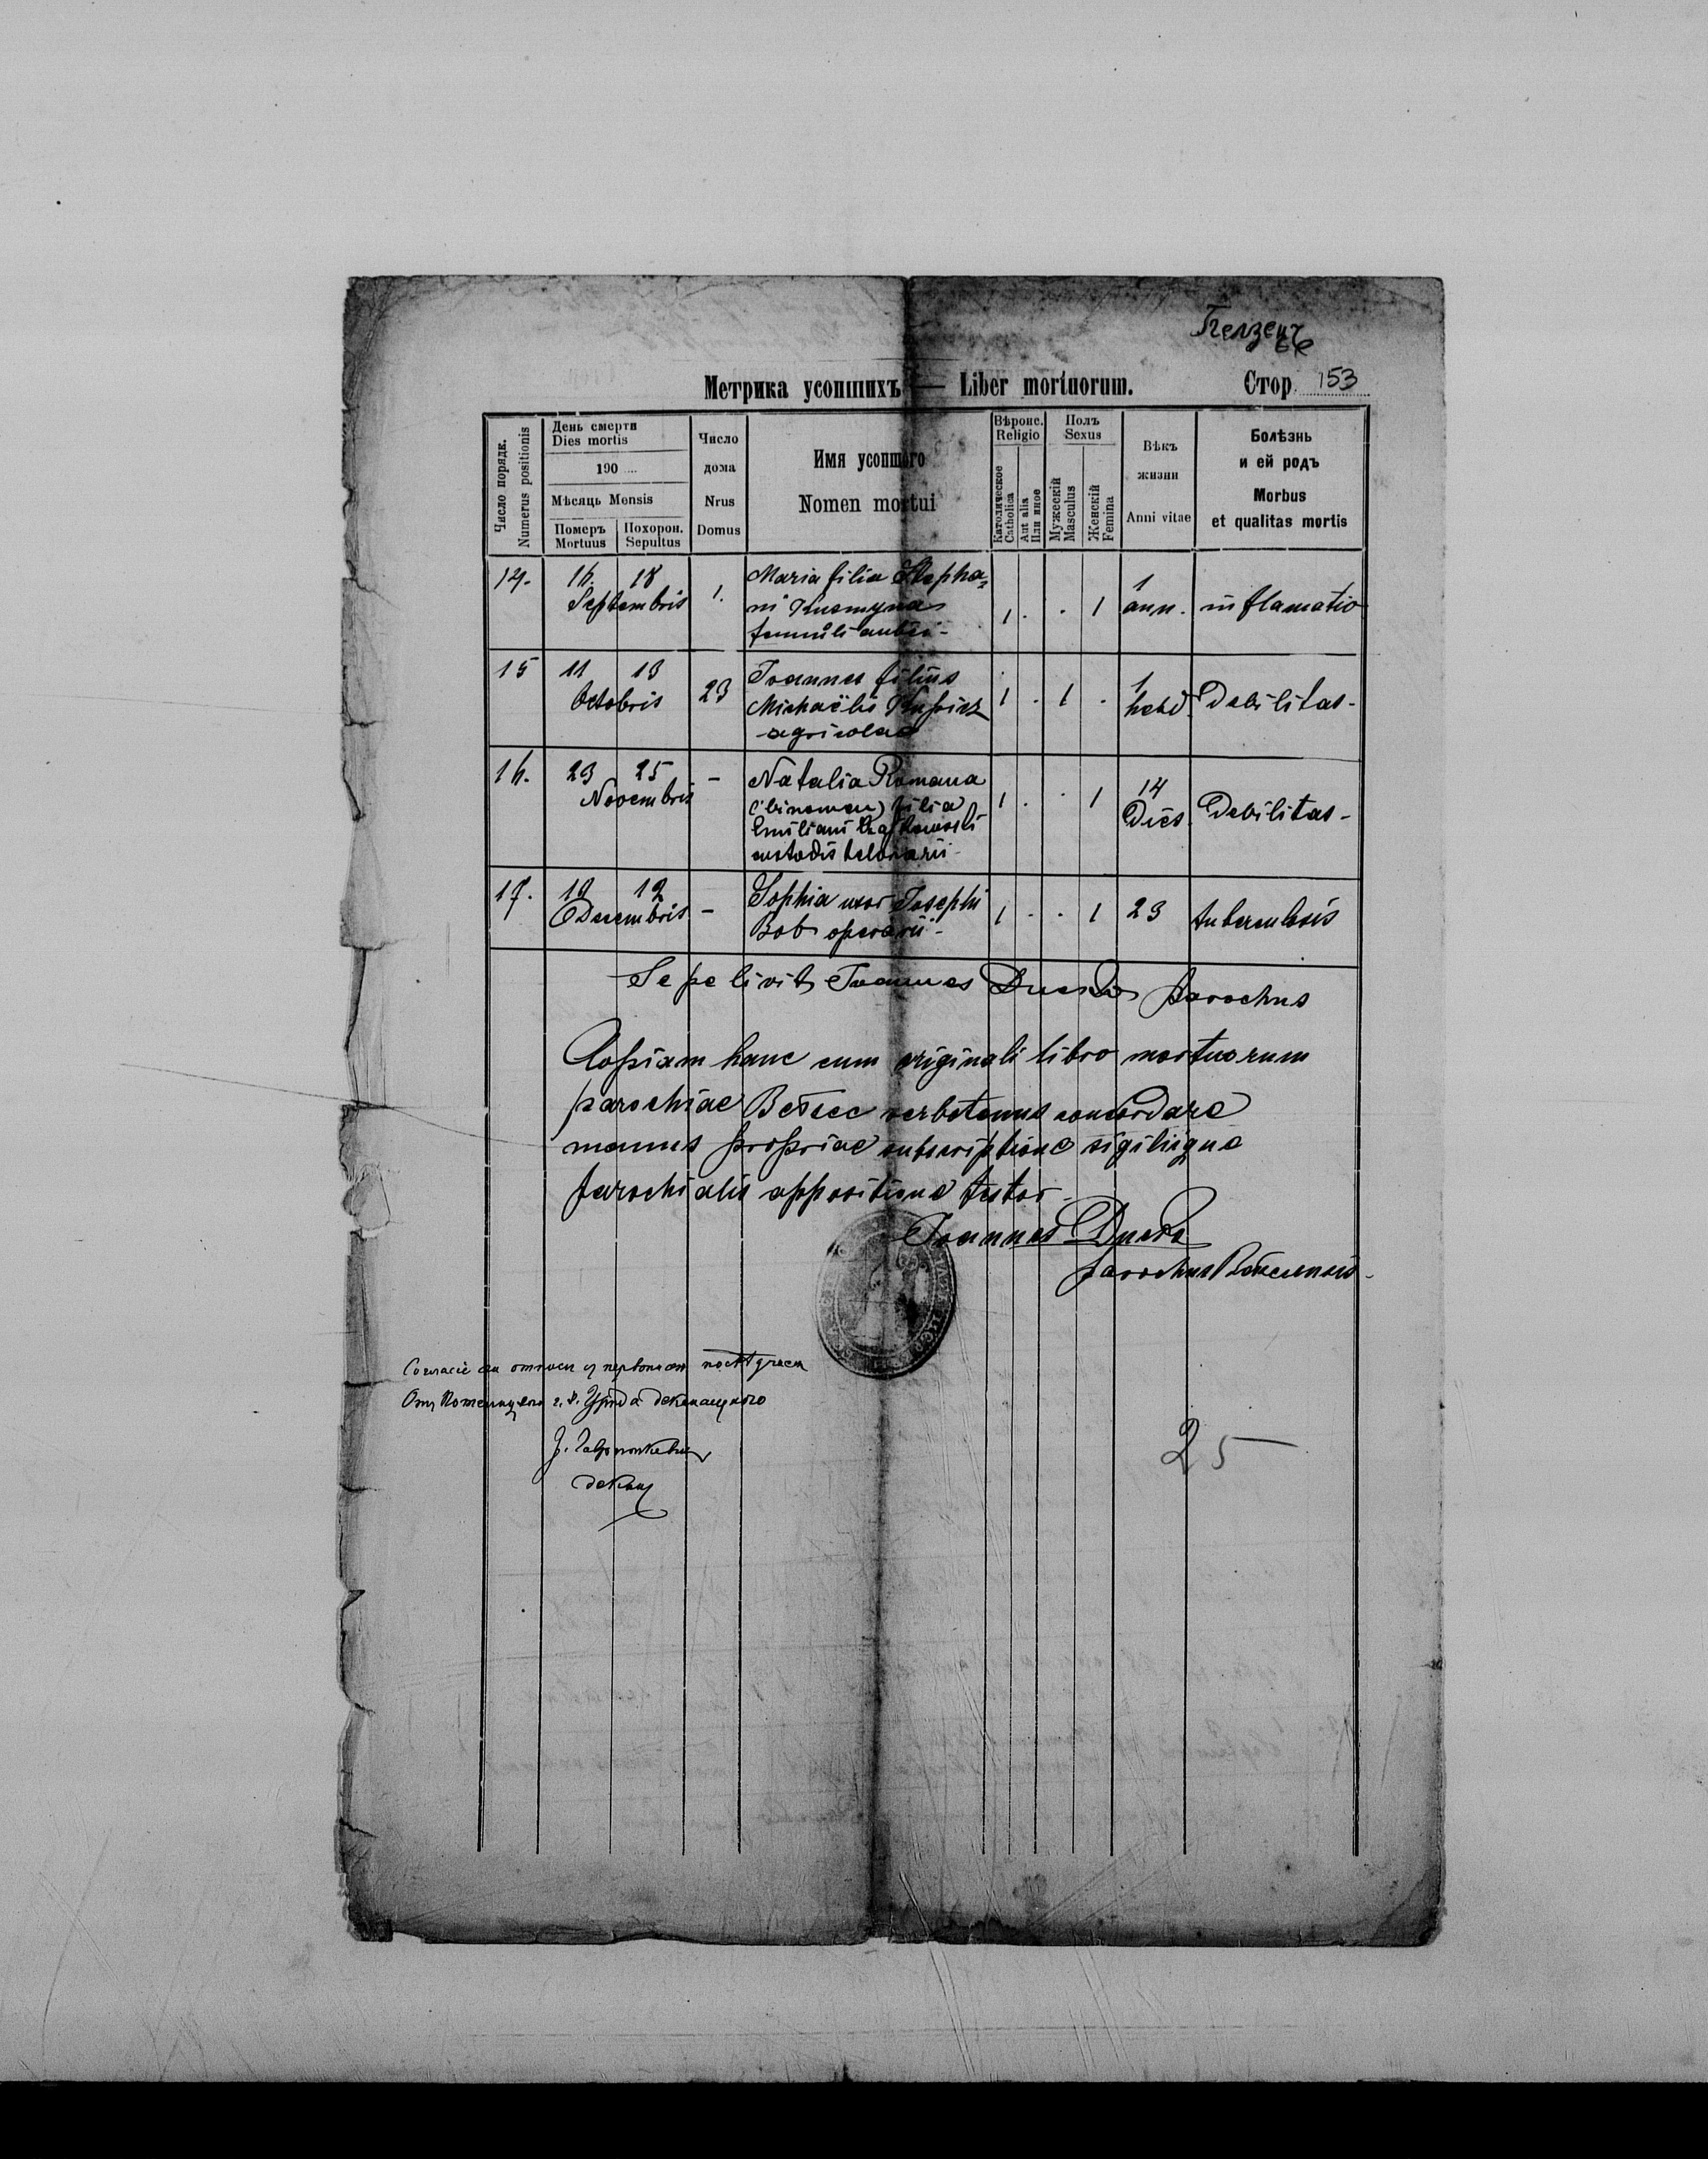 Белзець
Метрика усопшихъ — Liber mortuorum. Стор. 153
Число порядк. Numerus positionis
День смерти Dies mortis
190
Мѣсяць Mensis
Померъ Mortuus
Похорон. Sepultus
Число дома Nrus Domus
Имя усопшого
Nomen mortui
Вѣроис. Religio
Католическое Catholica
Aut alia Или иное
Полъ Sexus
Мужескій Masculus
Женскій Femina
Вѣкъ жизни Anni vitae
Болѣзнь и ей родъ
Morbus et qualitas mortis
14. 16. 18 Septembris 1.
Maria filia Stepha=
ni
famuli
1 . . 1 1 ann. inflamatio
15 11 13 Octobris 23
Joannes filius
Michaëlis
agricolae
1 . 1 . 1 hebd. Debilitas -
16. 23 25 Novembris -
Natalia Romana
(binomen) filia
Emiliani
custodis telonarii -
1 . . 1 14 Dies Debilitas -
17. 10 12 Decembris -
Sophia uxor Josephi
Bob operarii -
1 . . 1 23 tuberculosis
Sepelivit Joannes Durda parochus
Copiam hanc cum originali libro mortuorum
parochiae Bełzec verbotenus concordare
manus propriae subscriptione sigilique
parochialis appositione testor -
Joannes Durda
parochus Bełzecensis -
Согласіе
Отъ деканального
деканъ
25 —